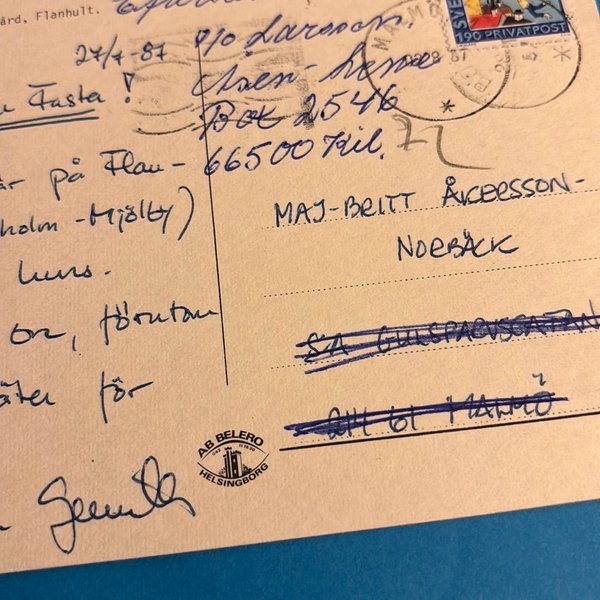 ård, Flanhult.
27/7-87
Fasta!
är på Flan-
holm-Mjölby)
kurs.
on, förutom
för
c/o Larsson.
Box 2546
66500 Kil.
72
SVE
190 PRIVATPOST
MALMÖ
87
MAJ-BRITT ÅKERSSON-
NORBÄCK
5A GULSPARVSGATAN
214 61 MALMÖ
AB BELERO
HELSINGBORG